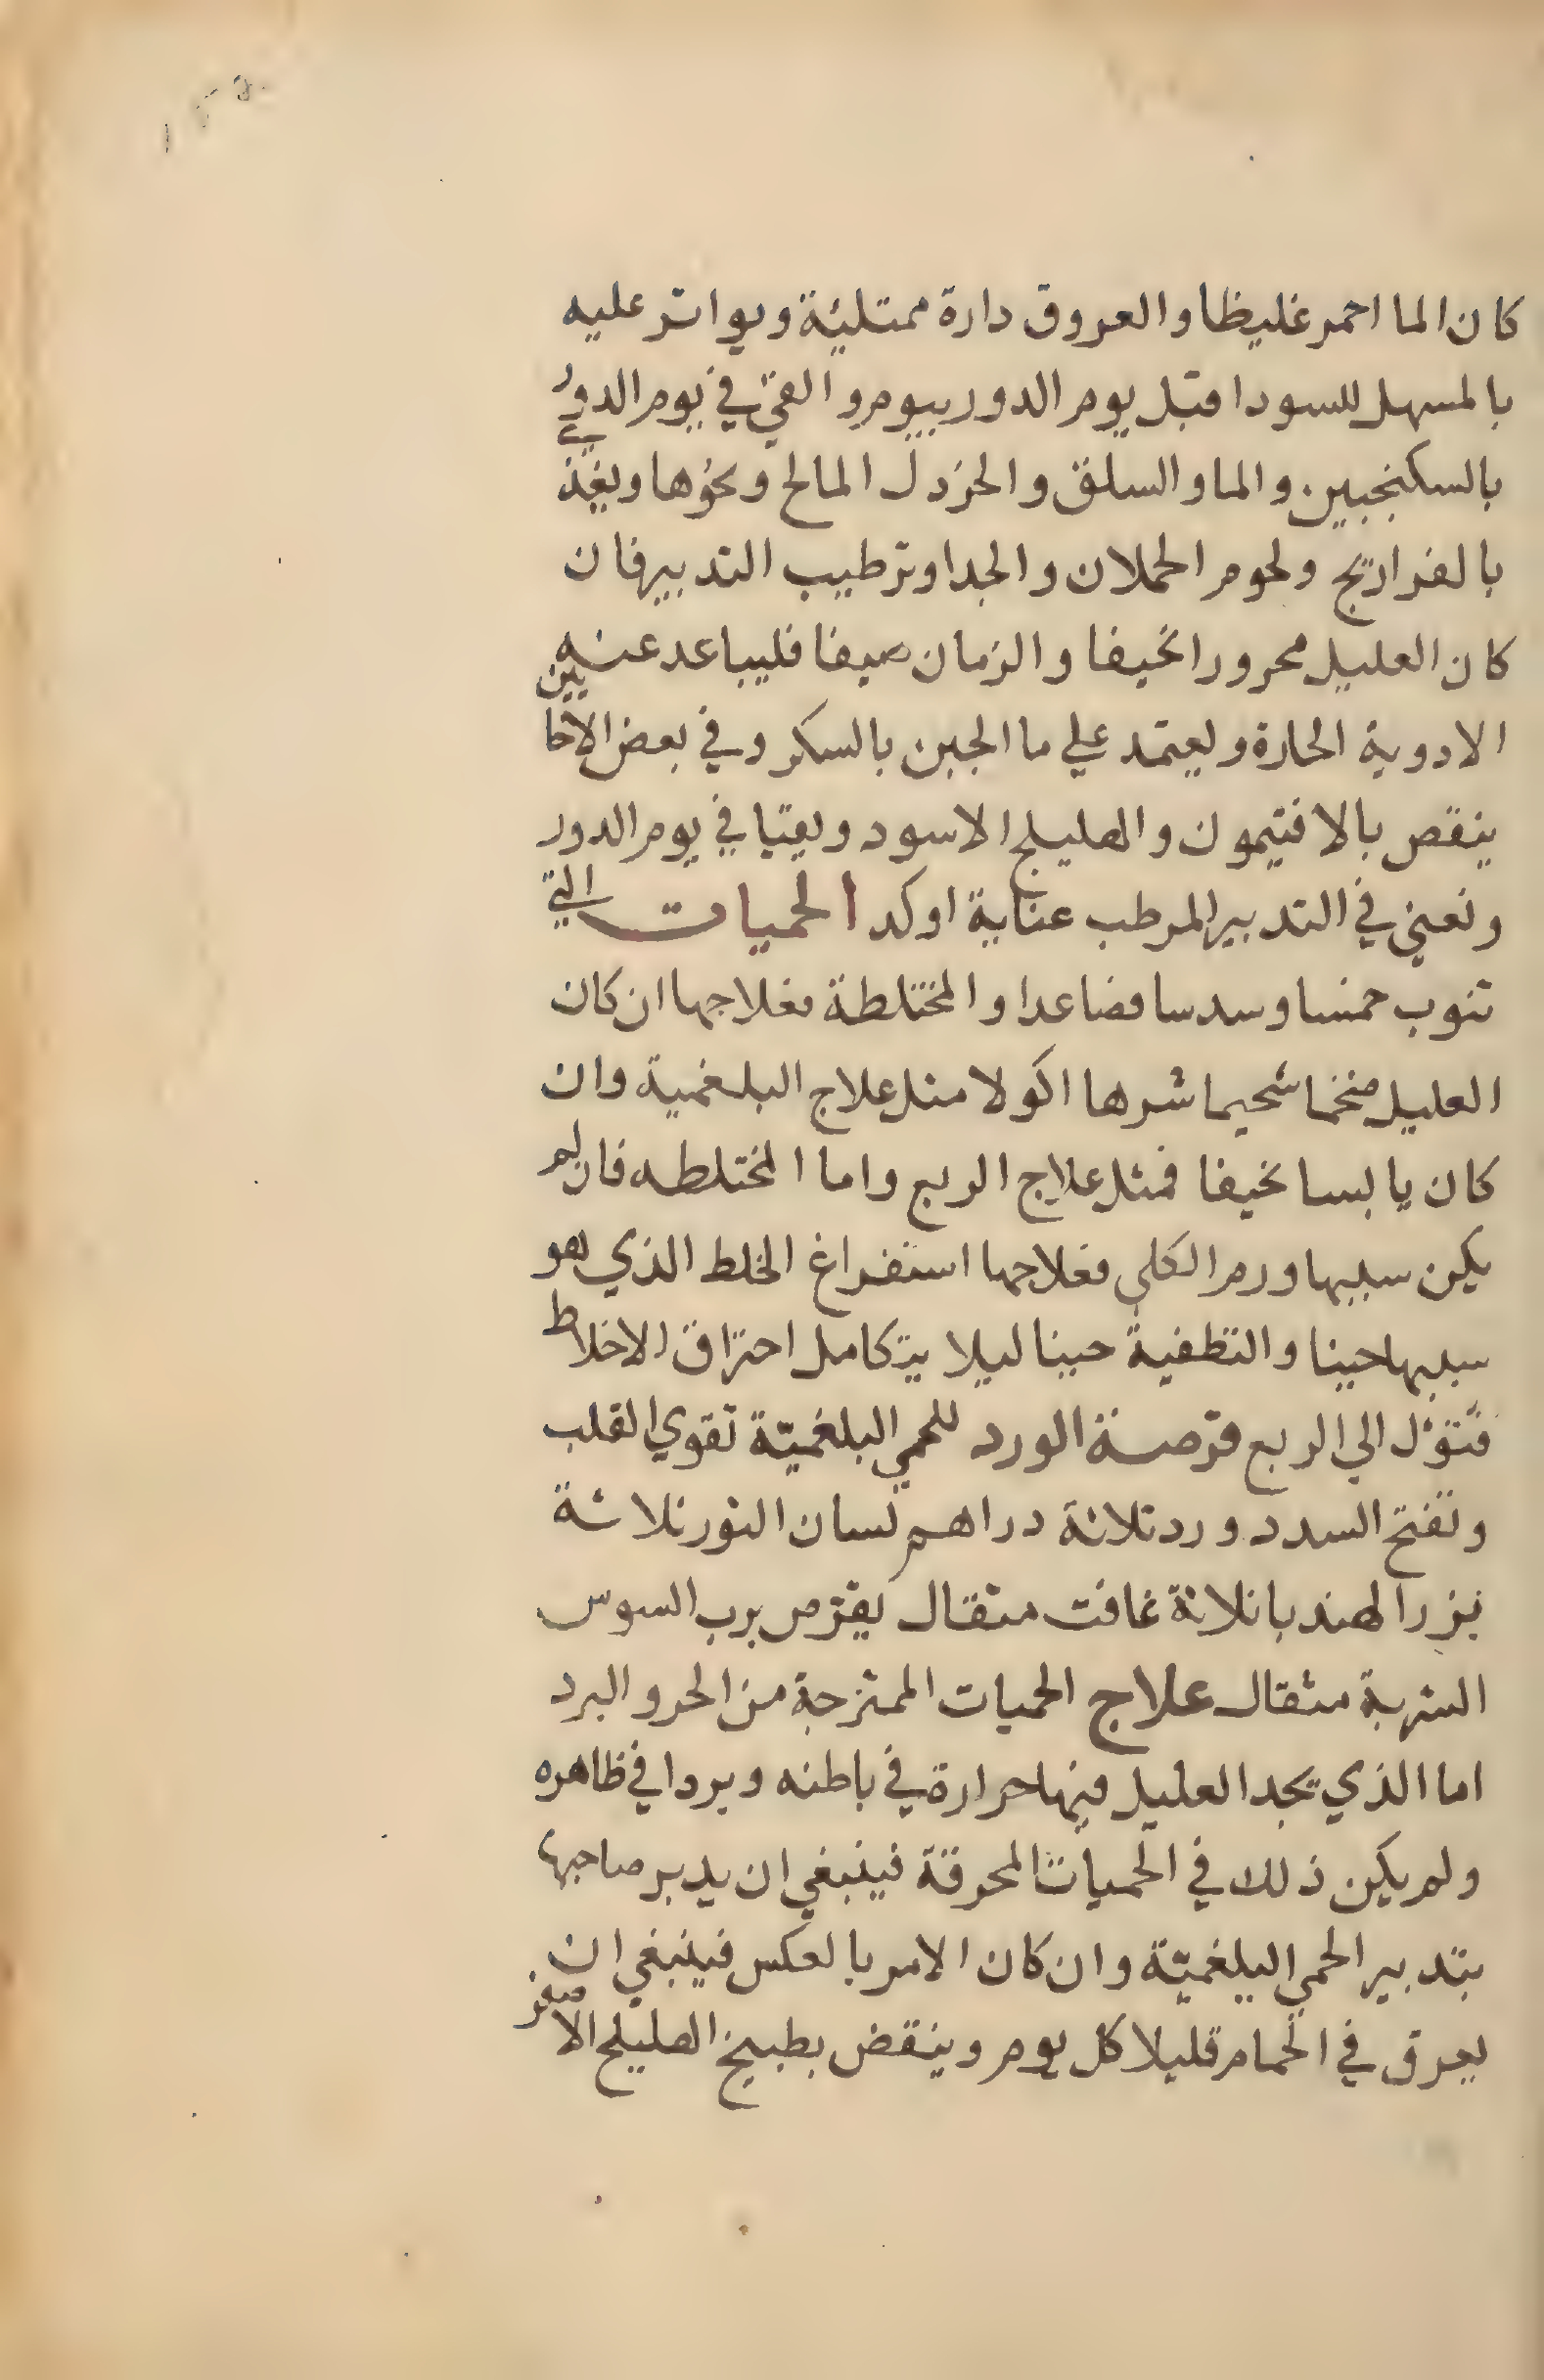 كان الما احمر غليظا والعروق دارة ممتلية ويواتر عليه
بالمسهل للسودا قبل يوم الدور بيوم والقي في يوم الدور
بالسكنجبين والما والسلق والخردل المالح ونحوها ويغذي
بالفراريج ولحوم الحملان والجدا وترطيب التدبير فان
كان العليل محرورا نحيفا والزمان صيفا فليباعد عنه
الادوية الحارة وليعتمد علي ما الجبن بالسكر وفي بعض الاحايين
ينقص بالافتيمون والهليلج الاسود ويقيا في يوم الدور
ونعني في التدبير المرطب عناية اوكد الحميات التي
تنوب خمسا وسدسا فصاعدا والمختلطة فعلاجها ان كان
العليل ضخما شحيما شرها اكولا مثل علاج البلغمية وان
كان يابسا نحيفا فمثل علاج الربع واما المختلطه فان لم
يكن سببها ورم الكلي فعلاجها استفراغ الخلط الذي هو
سببها حينا والتطفية حينا ليلا يتكامل احتراق الاخلاط
فتؤل الي الربع قرصة الورد للحمي البلغميّة تقوي القلب
وتفتح السدد ورد ثلاثة دراهم لسان الثور ثلاثة
بزر الهندبا ثلاثة غافت مثقال يقرص برب السوس
الشربة مثقال علاج الحميات الممتزجة من الحر والبرد
اما الذي يجد العليل فيها حرارة في باطنه وبردا في ظاهره
ولم يكن ذلك في الحميات المحرقة فينبغي ان يدبر صاحبها
بتدبير الحمي البلغميّة وان كان الامر بالعكس فينبغي ان
يعرق في الحمام قليلا كل يوم وينقض بطبيخ الهليلج الاصفر